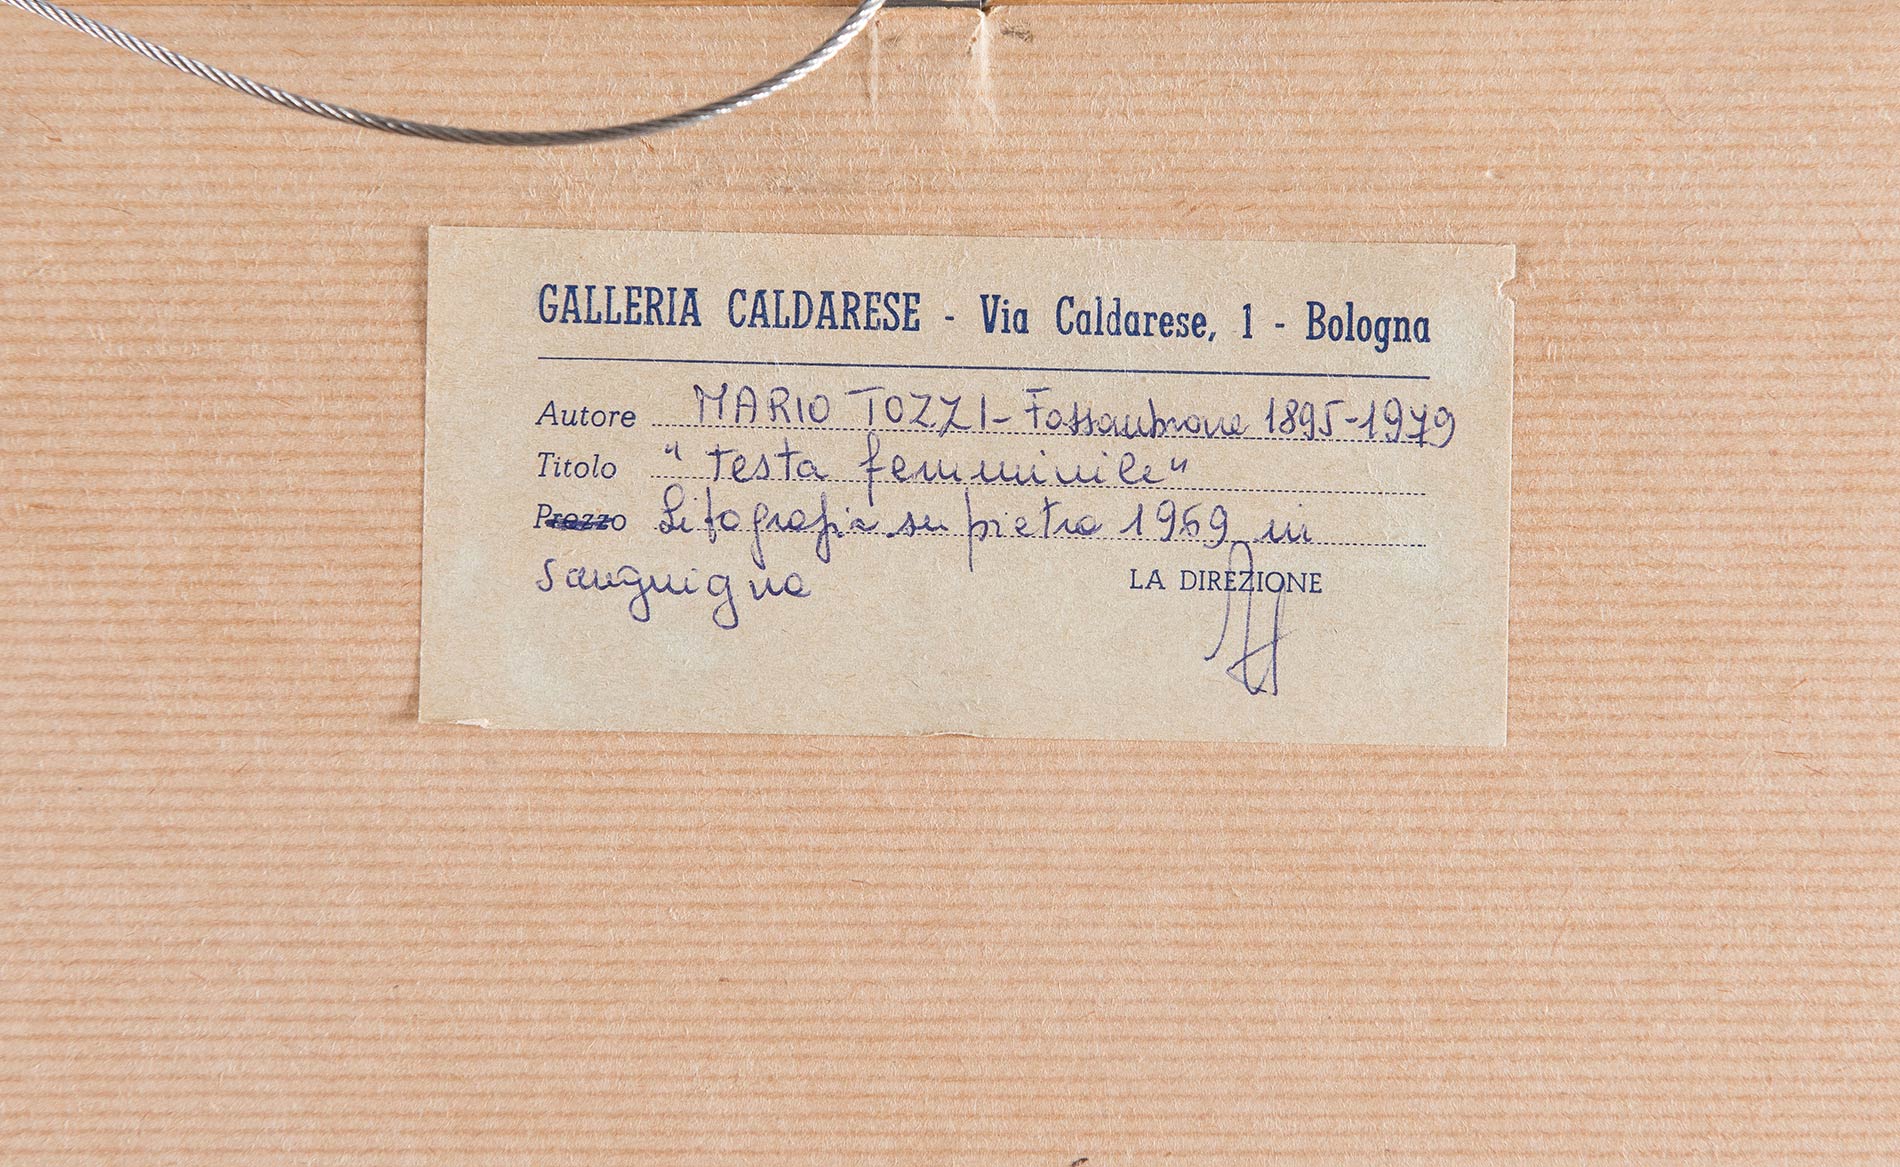 GALLERIA CALDARESE - Via Caldarese, 1 - Bologna
Autore MARIO TOZZI - Fossombrone 1895-1979
Titolo "Testa femminile"
Prezzo Litografia su pietra 1969 in
sanguigna
LA DIREZIONE